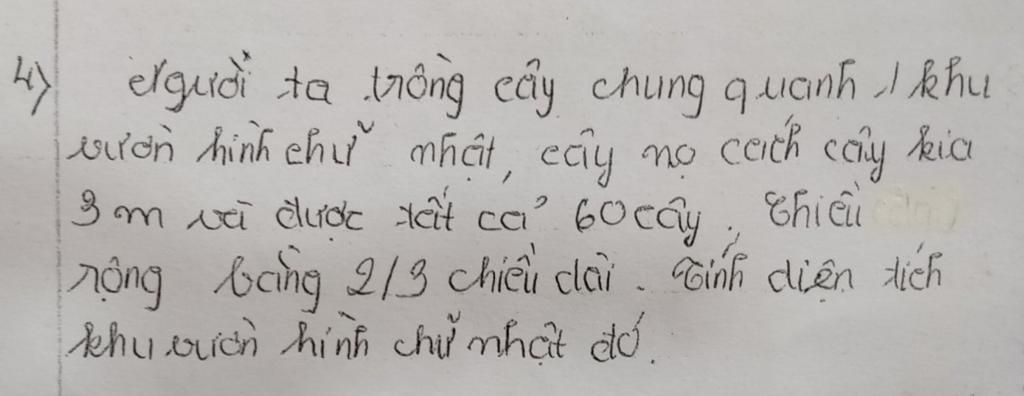 4) Người ta trồng cây chung quanh 1 khu
vườn hình chữ nhật, cây nọ cách cây kia
3 m và được tất cả 60 cây. Chiều
rộng bằng 2/3 chiều dài. Tính diện tích
khu vườn hình chữ nhật đó.